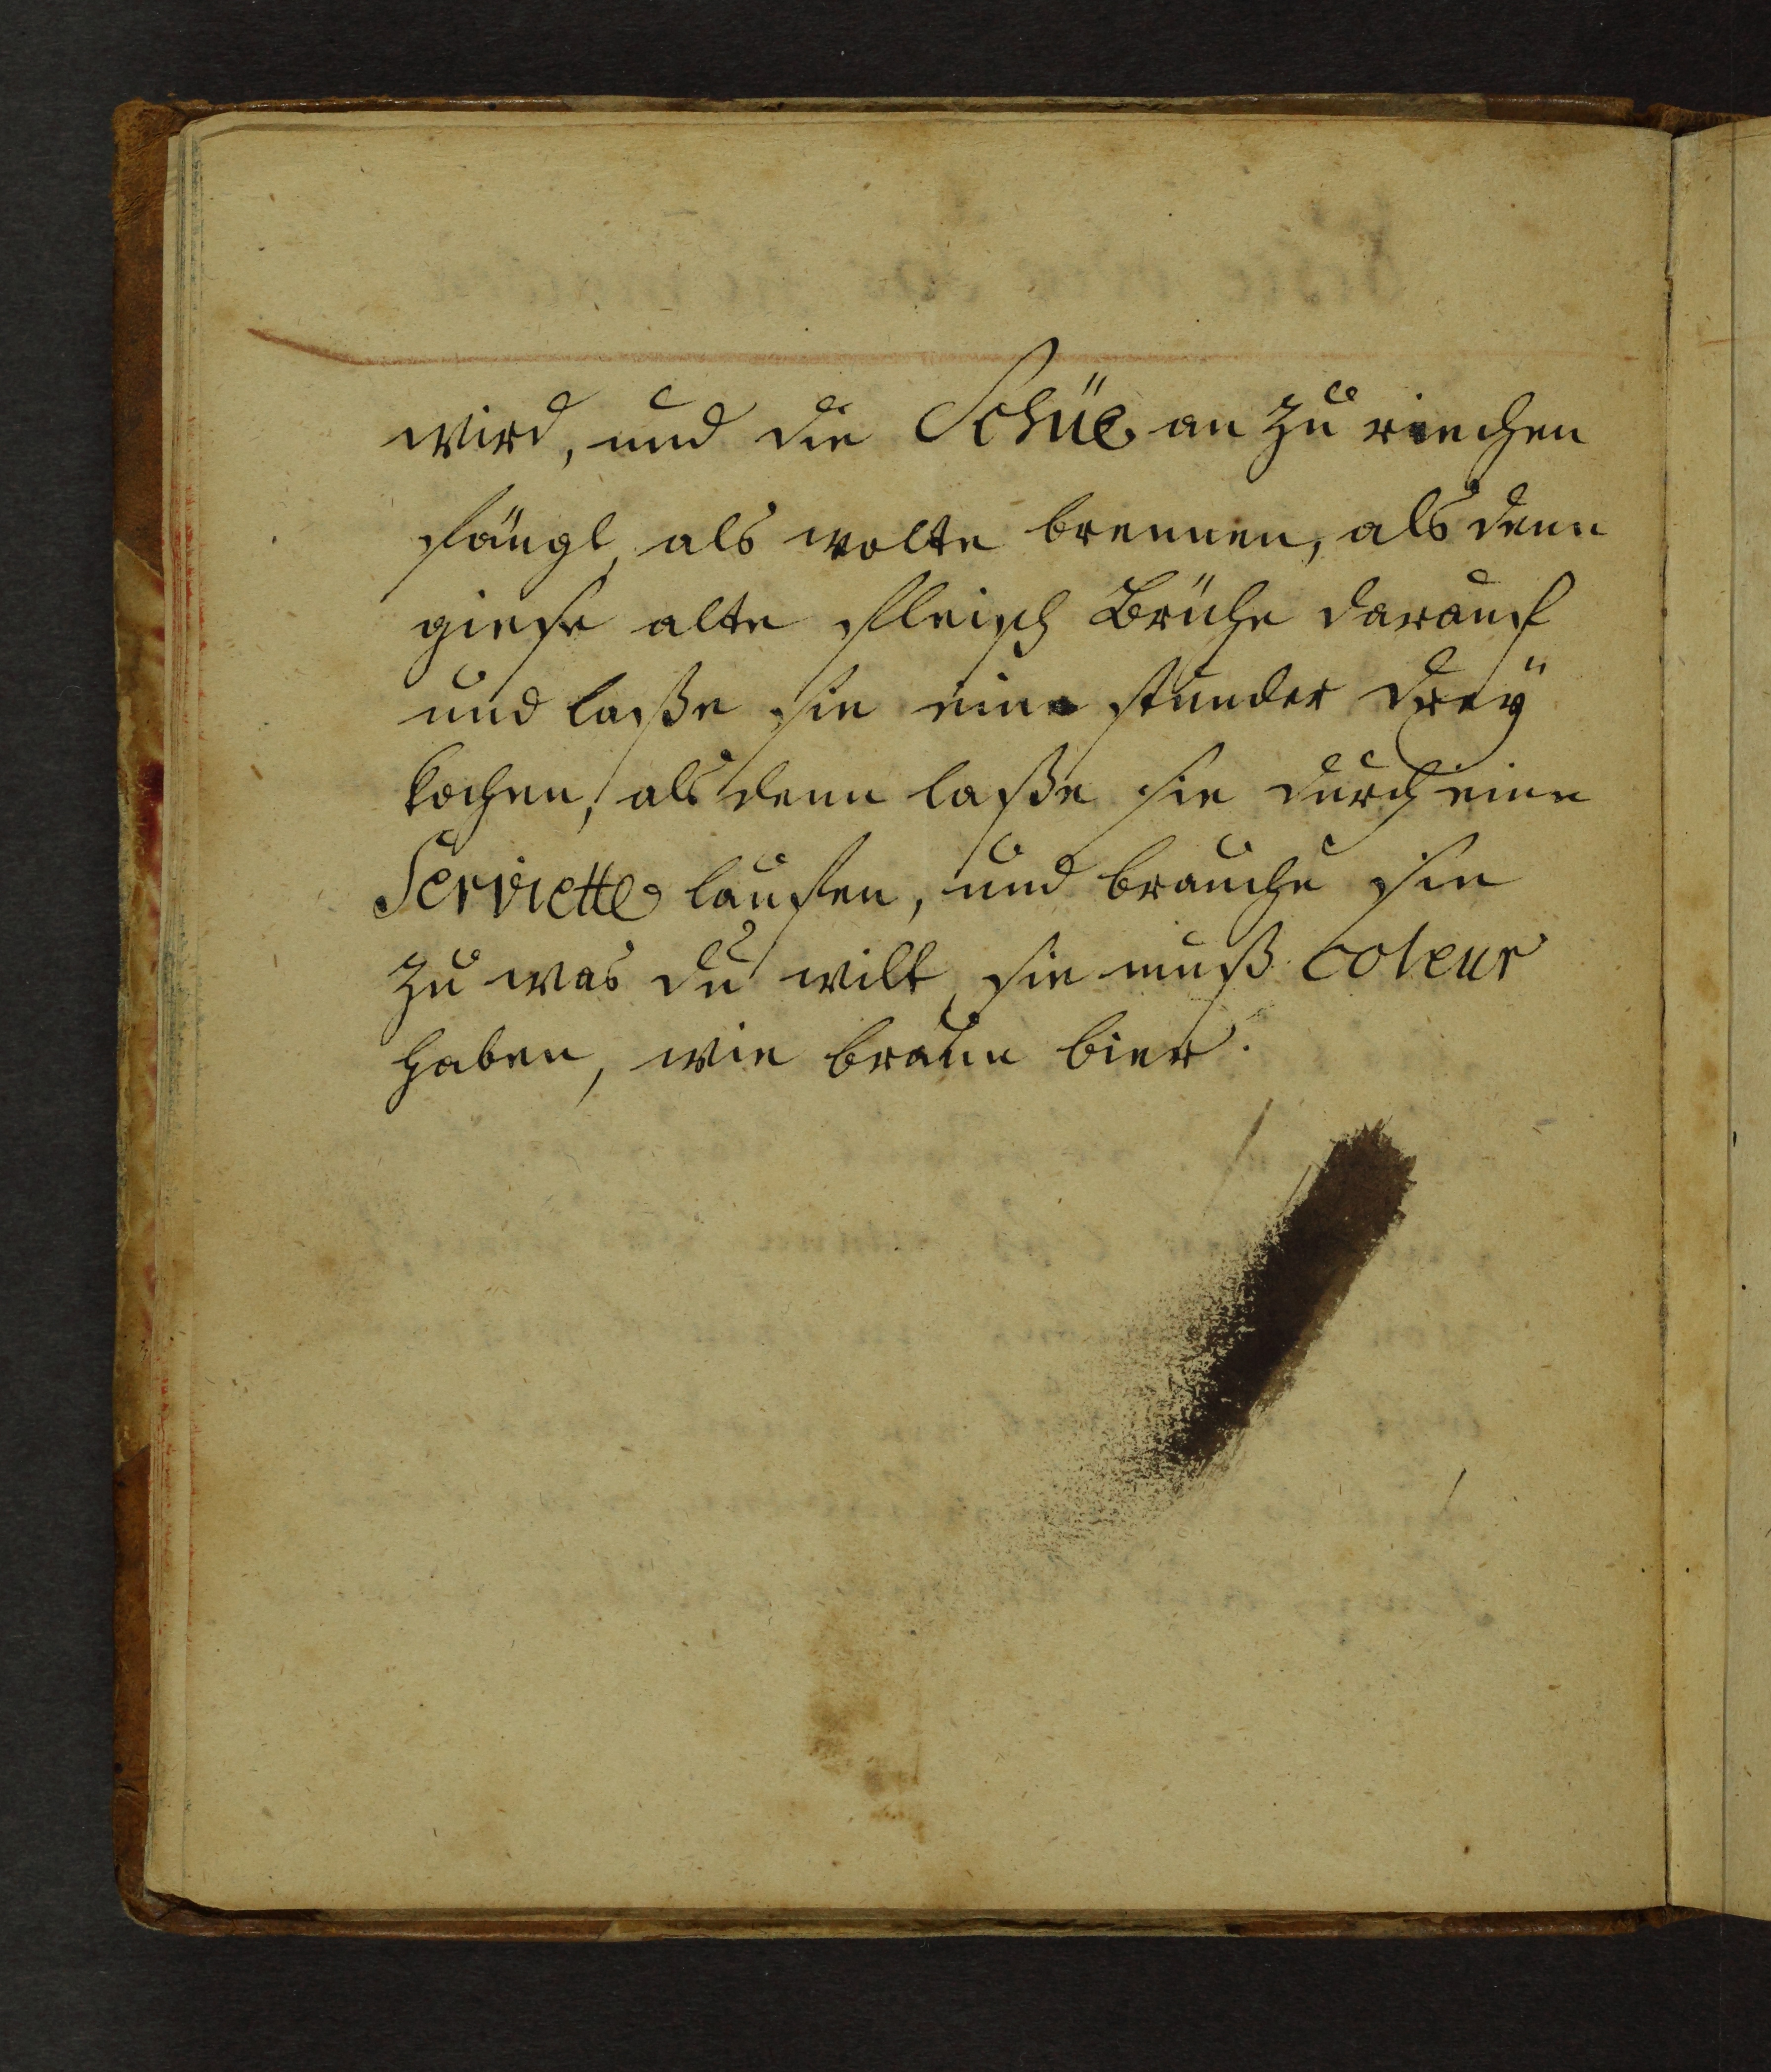 wird, und die Schüe an zu riechen
fängt, als wolte brennen, als denn
giese alte fleisch Brühe darauf
und laße sie eine stunder dreÿ
kochen, als denn laße sie durch eine
Serviette laufen, und brauche sie
zu was du wilt, sie muß coleur
haben, wie braun bier.